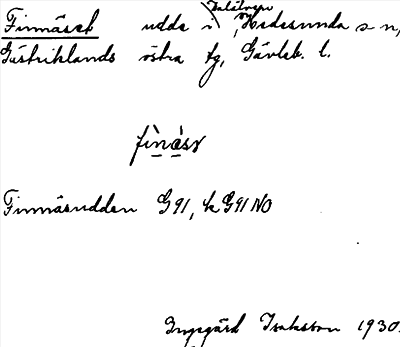 Finnäset udde i Dalälven, Hedesunda sn,
Gästriklands östra tg, Gävleb. l.
fìnǟsə
Finnäsudden G91, k G91 NO
Ingegärd Isaksson 1930.